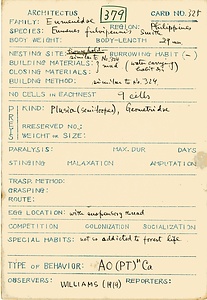 ARCHITECTUS 379 CARD NO. 325
FAMILY: Eumenidae REGION: Philippines
SPECIES: Eumenes fulvipennis Smith
BODY WEIGHT: BODY-LENGTH 29 mm
NESTING SITE: similar to No. 324 BURROWING HABIT (-)
BUILDING MATERIALS: mud (water carrying
CLOSING MATERIALS:
BUILDING METHOD: similar to No. 324
NO. CELLS IN EACH NEST 9 cells
PREY KIND: Plusia (semi-loper), Geometridae
RESERVED NO.:
WEIGHT OR SIZE:
PARALYSIS: MAX. DUR DAYS
STINGING MALAXATION AMPUTATION
TRASP. METHOD:
GRASPING:
ROUTE:
EGG LOCATION: with suspensory thread
COMPETITION COLONIZATION SOCIALIZATION
SPECIAL HABITS: not so addicted to forest life
TYPE OF BEHAVIOR: AO(PT)ⁿCa
OBSERVERS: WILLIAMS (1919) REPORTERS: